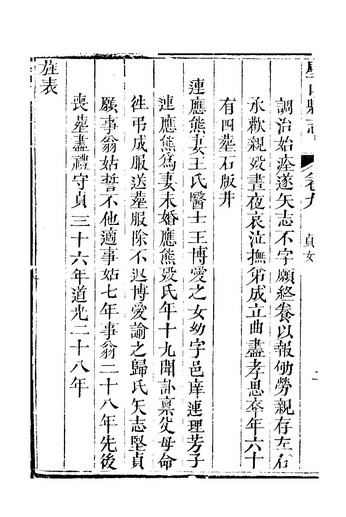 卷九 貞女
調治始痊遂矢志不字願終養以報劬勞親存左右
承歡親歿晝夜哀泣撫弟成立曲盡孝思卒年六十
有四葬石版井
連應熊妻王氏醫士王博愛之女幼字邑庠連理芳子
連應熊爲妻未婚應熊歿氏年十九聞訃稟父母命
往弔成服送葬服除不返博愛諭之歸氏矢志堅貞
願事翁姑誓不他適事姑七年事翁二十八年先後
喪葬盡禮守貞三十六年道光二十八年
旌表